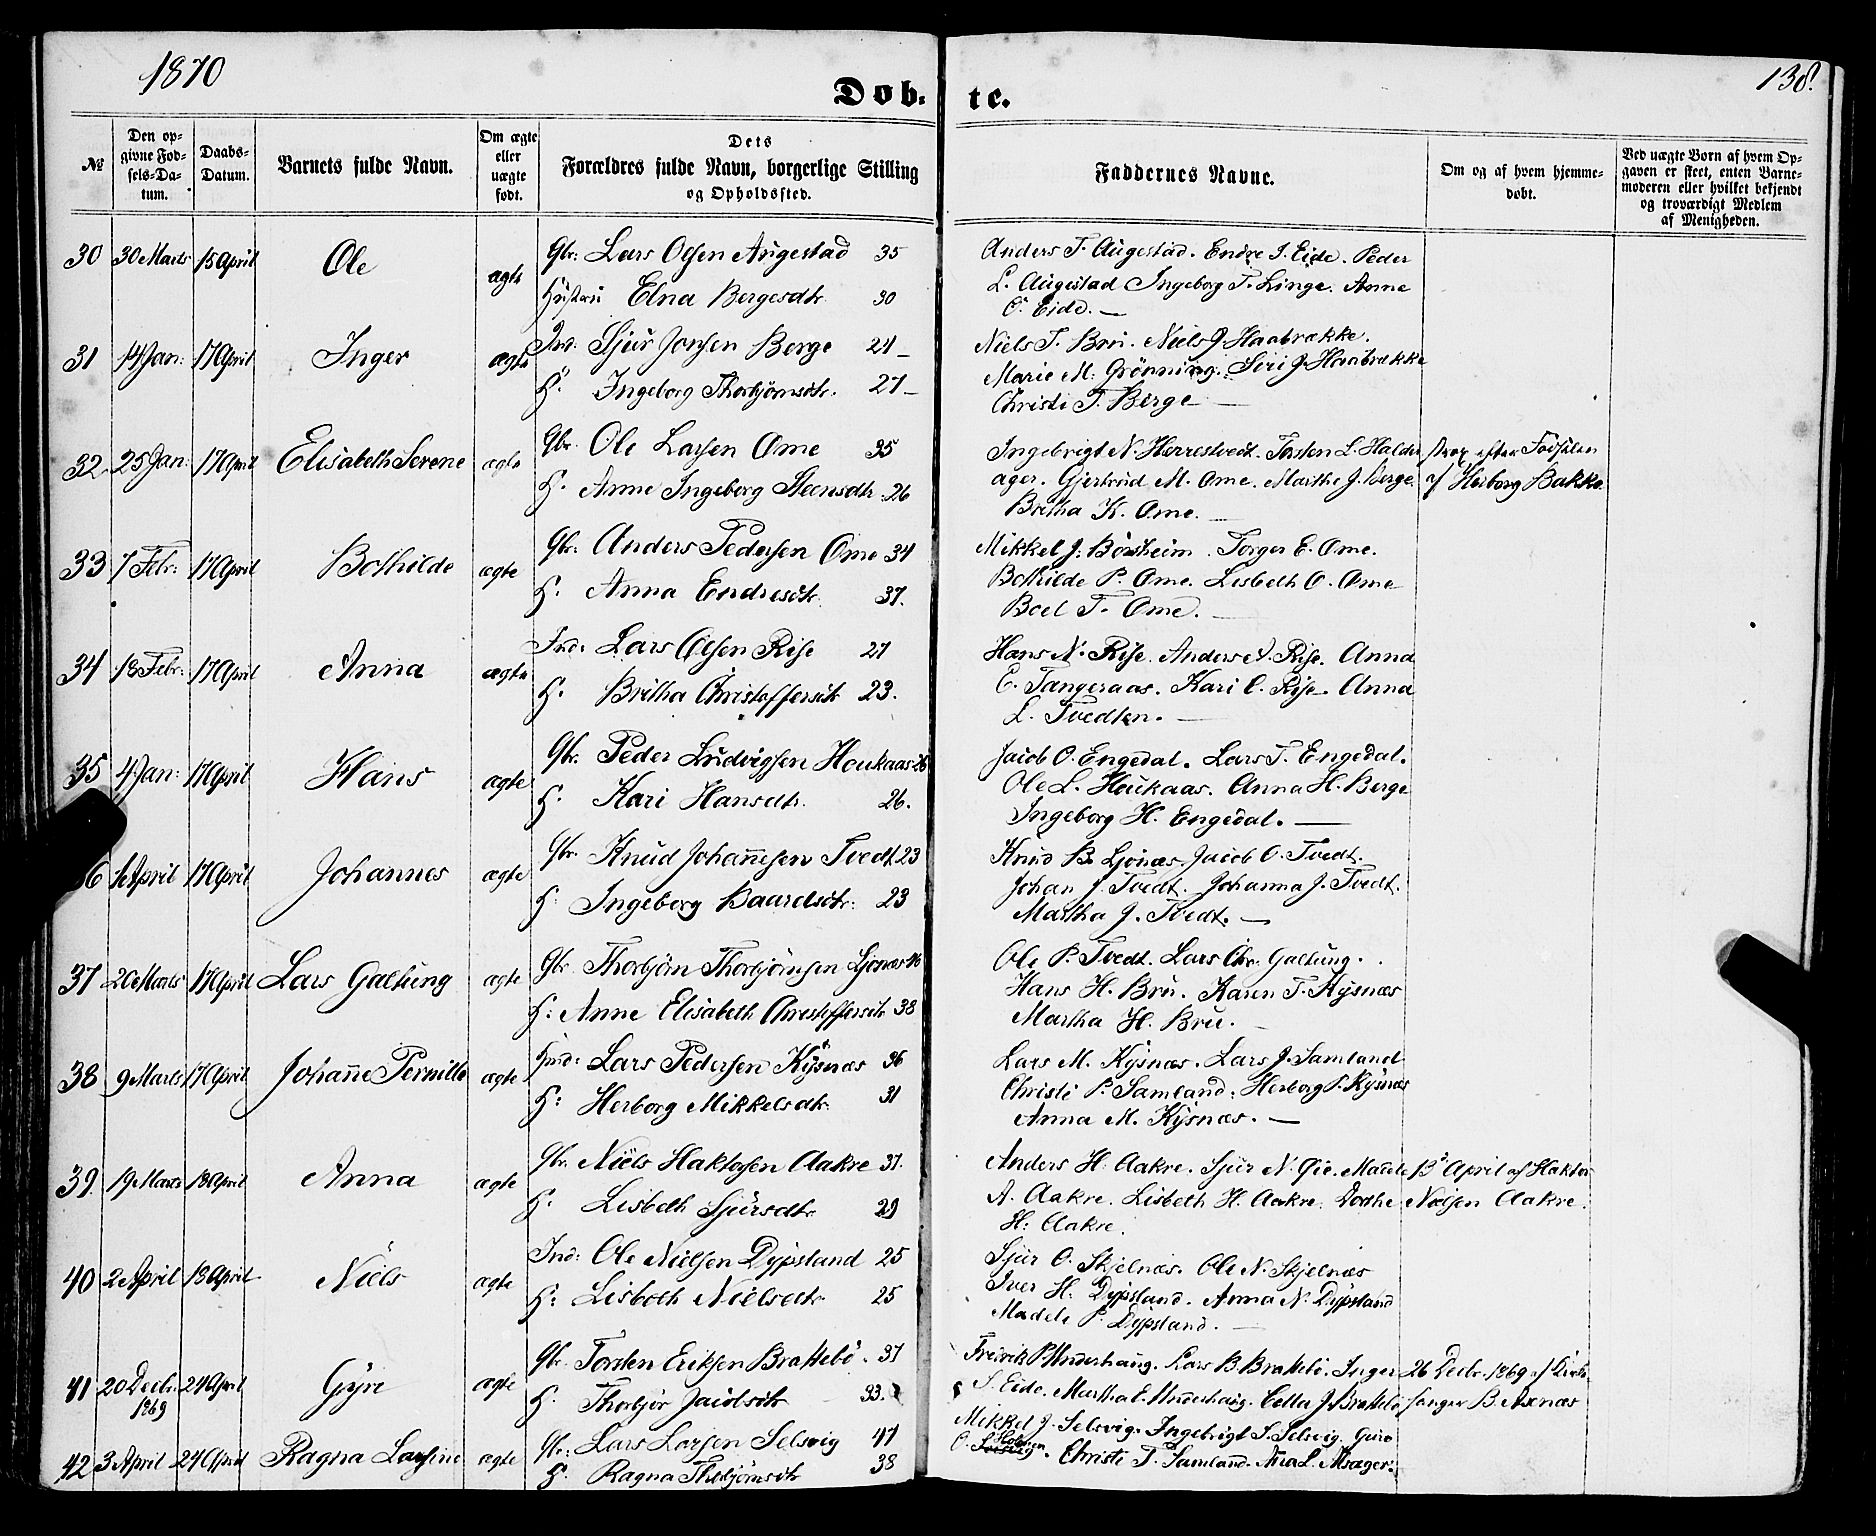 1870
138.
Døb- te.
№
Den opgivne Fødsels-Datum.
Daabs-Datum.
Barnets fulde Navn.
Om ægte eller uægte født.
Dets Forældres fulde Navn, borgerlige Stilling og Opholdssted.
Faddernes Navne.
Om og af hvem hjemmedøbt.
Ved uægte Børn af hvem Opgaven er skeet, enten Barnemoderen eller hvilket bekjendt og troværdigt Medlem af Menigheden.
30 30 Marts 15 April Ole ægte
Gbr: Lars Olsen Augestad 35
Hustru Elna Bergesdtr. 30
Anders T. Augestad. Endre I. Eide. Peder
L. Augestad Ingeborg T. Linge. Anne
O. Eide. —
31 14 Jan: 17 April Inger ægte
Ind: Sjur Jonsen Berge 24 –
H. Ingeborg Thorbjörnsdtr. 27 –
Niels T. Bru. Niels J. Haabrække.
Marie M. Grönning. Siri J. Haabrække
Christi T. Berge —
32 25 Jan: 17 April Elisabeth Serene ægte
Gbr. Ole Larsen Ome 35
H. Anne Ingeborg Steensdtr. 26
Ingebrigt N. Herrestvedt. Torsten L. Halder
ager. Gjertrud M. Ome. Marthe J. Berge.
Britha K. Ome. —
strax efter Födselen
af Herborg Bakke
33 7 Febr: 17 April Bothilde ægte
Gbr: Anders Pedersen Ome 34
H. Anna Endresdtr. 37.
Mikkel J. Börsheim. Torger E. Ome.
Bothilde P. Ome. Lisbeth O. Ome
Boel T. Ome. —
34 18 Febr: 17 April Anna ægte
Ind: Lars Olsen Rise 27
H. Britha Christoffersdtr 23.
Hans N. Rise. Anders A. Rise. Anna
E. Tangeraas. Kari C. Rise. Anna
L. Tvedten. —
35 4 Jan: 17 April Hans ægte
Gbr. Peder Ludvigsen Houkaas 26
H. Kari Hansdtr. 26.
Jacob O. Engedal. Lars T. Engedal.
Ole L. Houkaas. Anna H. Berge
Ingeborg H. Engedal. —
6 1 April 17 April Johannes ægte
Gbr. Knud Johannesen Tvedt 23
H. Ingeborg Baardsdtr. 23
Knud B. Ljönæs, Jacob O. Tvedt.
Johan J. Tvedt. Johanna J. Tvedt.
Martha J. Tvedt. —
37 20 Marts 17 April Lars Galtung ægte
Gbr. Thorbjörn Thorbjörnsen Ljonæs 46
H: Anne Elisabeth Christoffersdtr 38
Ole P. Tvedt. Lars Chr. Galtung.
Hans H. Bru. Karen T. Kysnæs
Martha H. Bru. –
38 9 Marts 17 April Johanne Pernille ægte
Lars Pedersen Kysnæs 36
H: Herborg Mikkelsdtr. 31
Lars M. Kysnæs. Lars J. Samland
Christi P. Samland. Herborg P. Kysnæs
Anna M. Kysnæs. —
39 19 Marts 18 April Anna ægte
Gbr. Niels Haktorsen Aakre 37.
H. Lisbeth Sjursdtr 29
Anders H. Aakre. Sjur N. Øie. Madele
A. Aakre. Lisbeth H. Aakre. Dorthe
H: Aakre.
13 April af Haktor
Nielsen Aakre.
40 2 April 18 April Niels ægte
Ind: Ole Nielsen Dypsland 25
H: Lisbeth Nielsdtr 25
Sjur O. Skjelnæs. Ole N. Skjelnæs
Iver H. Dypsland. Anna N. Dypsland
Madele P. Dypsland. —
41 20 Decbr. 1869 24 April Gyri ægte
Gbr. Torsten Eriksen Brattebö. 37
H. Thorbjör Jacobsdtr 33.
Fredrik P. Underhaug. Lars B. Brattebö. Inger
S. Eide. Martha E. Underhaug. Cella J. Brattebö
26 Decbr. 1869 af Kirke
sanger B. Axenæs
42 3 April 24 April Ragna Larsine ægte
Gbr: Lars Larsen Selsvig 47
H. Ragna Thorbjörnsdtr 38
Mikkel J. Selsvig. Ingebrigt S. Selsvig. Guro
O. Christi T. Samland.